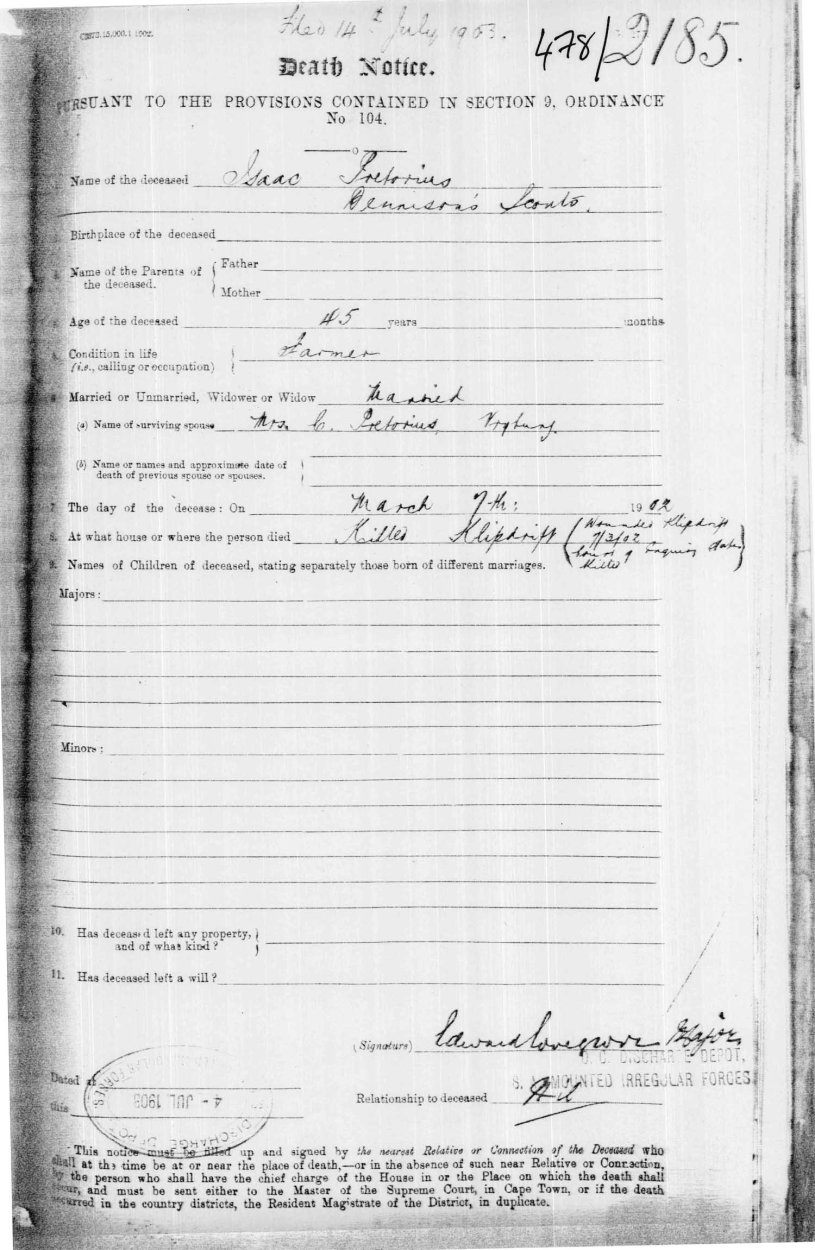 Filed 14th July 1903.
478/2185.
Death Notice.
PURSUANT TO THE PROVISIONS CONTAINED IN SECTION 9, ORDINANCE
No 104.
Name of the deceased Isaac Pretorius
Dennison's Scouts.
Birthplace of the deceased
Name of the Parents of the deceased.
Father
Mother
Age of the deceased 45 years months
Condition in life Farmer
(i.e., calling or occupation)
Married or Unmarried, Widower or Widow Married
(a) Name of surviving spouse Mrs. C. Pretorius, Vryburg.
(b) Name or names and approximate date of
death of previous spouse or spouses.
7. The day of the decease: On March 7th: 1902
8. At what house or where the person died Killed Klipdrift (Wounded Klipdrift
7/3/02
Enquiry
Killed)
9. Names of Children of deceased, stating separately those born of different marriages.
Majors:
Minors:
10. Has deceased left any property,
and of what kind?
11. Has deceased left a will?
(Signature) Edward Lovegrove Major
O. C. DISCHARGE DEPOT,
S. A. MOUNTED IRREGULAR FORCES
Dated at
this
4 - JUL 1903
DISCHARGE DEPOT
Relationship to deceased Nil
This notice must be filled up and signed by the nearest Relative or Connection of the Deceased who
shall at the time be at or near the place of death,—or in the absence of such near Relative or Connection,
by the person who shall have the chief charge of the House in or the Place on which the death shall
occur, and must be sent either to the Master of the Supreme Court, in Cape Town, or if the death
occurred in the country districts, the Resident Magistrate of the District, in duplicate.